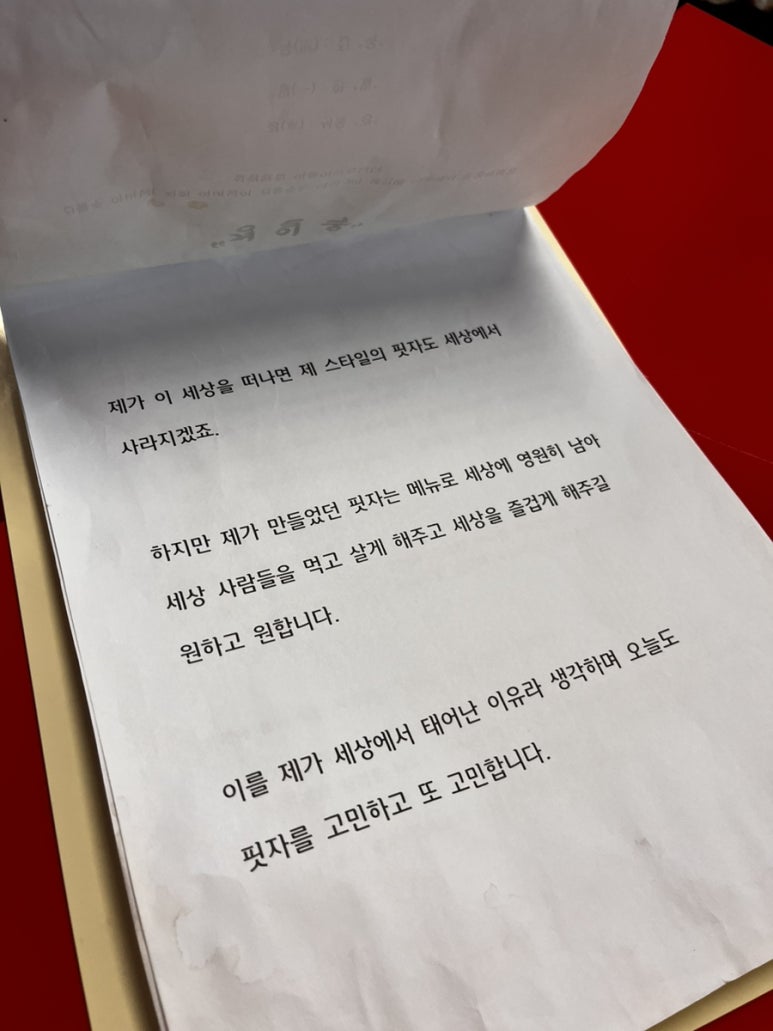 제가 이 세상을 떠나면 제 스타일의 핏자도 세상에서
사라지겠죠.
하지만 제가 만들었던 핏자는 메뉴로 세상에 영원히 남아
세상 사람들을 먹고 살게 해주고 세상을 즐겁게 해주길
원하고 원합니다.
이를 제가 세상에서 태어난 이유라 생각하며 오늘도
핏자를 고민하고 또 고민합니다.